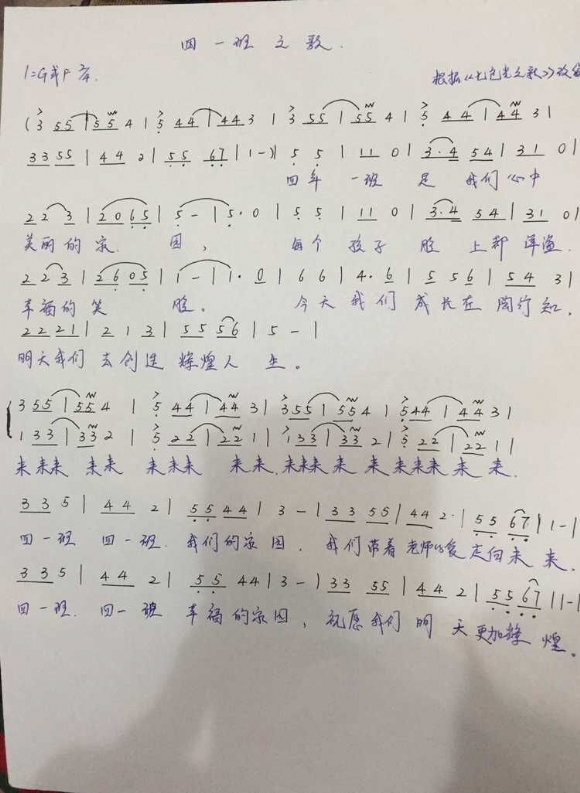 四一班之歌.
1=G或F 2/4. 根据《七色光之歌》改编
(3 55 | 55 4 | 5 44 | 44 3 | 3 55 | 55 4 | 5 44 | 44 3 |
33 55 | 44 2 | 55 67 | 1 -) | 5 5 | 11 0 | 3·4 54 | 31 0 |
四年 一班 是 我们 心中
22 3 | 2065 | 5 - | 5·0 | 5 5 | 11 0 | 3·4 54 | 31 0 |
美丽的家 园, 每个 孩子 脸 上都 洋溢
22 3 | 2605 | 1 - | 1·0 | 6 6 | 4·6 | 5 56 | 54 3 |
幸福的笑 脸。 今天 我们 成长在 陶行知.
2221 | 2 13 | 55 56 | 5 - |
明天我们 去创造 辉煌人 生。
3 55 | 55 4 | 5 44 | 44 3 | 3 55 | 55 4 | 5 44 | 44 3 |
1 33 | 33 2 | 5 22 | 22 1 | 1 33 | 33 2 | 5 22 | 22 1 |
来来来 来来 来来来 来来. 来来来 来 来 来来来 来 来.
33 5 | 44 2 | 55 44 | 3 - | 33 55 | 44 2· | 55 67 | 1 - |
四一班 四一班. 我们的家园. 我们带着老师的爱 走向未 来.
33 5 | 44 2 | 55 44 | 3 - | 33 55 | 44 2 | 55 67 | 1 - |
四一班. 四一班 幸福的家园, 祝愿我们 明 天更加辉 煌。